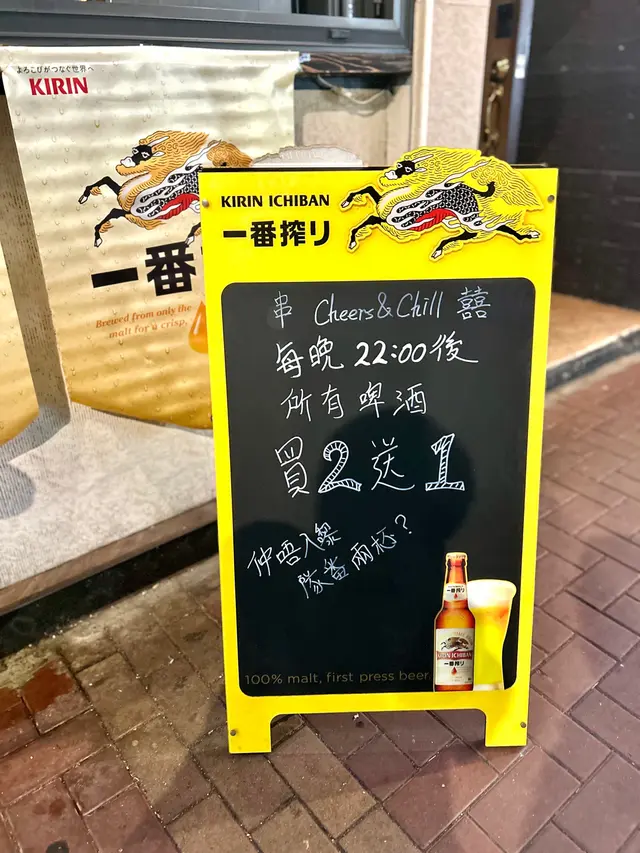 よろこびがつなぐ世界へ
KIRIN
一番
Brewed from only the
malt for a crisp,
KIRIN ICHIBAN
一番搾り
串 Cheers&Chill 囍
每晚 22:00後
所有啤酒
買2送1
仲唔入黎
隊番兩枝?
一番搾り
KIRIN ICHIBAN
一番搾り
100% malt, first press beer